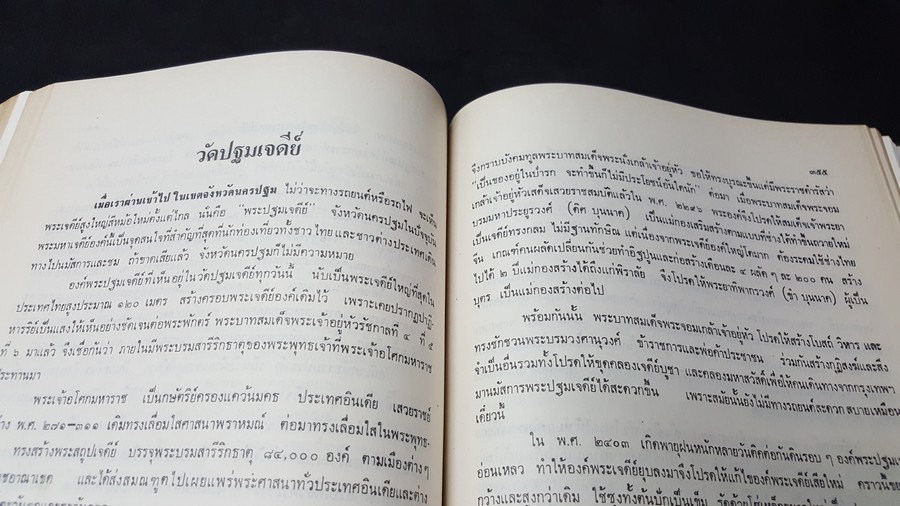 วัดปฐมเจดีย์
เมื่อเราผ่านเข้าไป ในเขตจังหวัดนครปฐม ไม่ว่าจะทางรถยนต์หรือรถไฟ จะเห็น
พระเจดีย์สูงใหญ่สีหม้อใหม่ตั้งแต่ไกล นั่นคือ "พระปฐมเจดีย์" จังหวัดนครปฐมในปัจจุบัน
พระมหาเจดีย์องค์นี้เป็นจุดสนใจที่สำคัญที่สุดที่นักท่องเที่ยวทั้งชาวไทยและชาวต่างประเทศเดิน
ทางไปนมัสการและชม ถ้าขาดเสียแล้ว จังหวัดนครปฐมก็ไม่มีความหมาย
องค์พระเจดีย์ที่เห็นอยู่ในวัดปฐมเจดีย์ทุกวันนี้ นับเป็นพระเจดีย์ใหญ่ที่สุดใน
ประเทศไทยสูงประมาณ ๑๒๐ เมตร สร้างครอบพระเจดีย์องค์เดิมไว้ เพราะเคยปรากฏปาฏิ-
หารรย์เป็นแสงให้เห็นอย่างชัดเจนต่อพระพักตร์ พระบาทสมเด็จพระเจ้าอยู่หัวรัชกาลที่ ๔ ที่ ๕
ที่ ๖ มาแล้ว จึงเชื่อกันว่า ภายในมีพระบรมสารีริกธาตุของพระพุทธเจ้าที่พระเจ้าอโศกมหาราช
ประทานมา
พระเจ้าอโศกมหาราช เป็นกษัตริย์ครองแคว้นมคธ ประเทศอินเดีย เสวยราชย์
พ.ศ. ๒๗๑-๓๑๑ เดิมทรงเลื่อมใสศาสนาพราหมณ์ ต่อมาทรงเลื่อมใสในพระพุทธ-
ทรงสร้างพระสถูปเจดีย์ บรรจุพระบรมสารีริกธาตุ ๘๔,๐๐๐ องค์ ตามเมืองต่างๆ
และได้ส่งสมณฑูตไปเผยแพร่พระศาสนาทั่วประเทศอินเดียและต่าง
๓๕๕
จึงกราบบังคมทูลพระบาทสมเด็จพระนั่งเกล้าเจ้าอยู่หัว ขอให้ทรงบูรณะขึ้นแต่มีพระราชดำรัสว่า
"เป็นของอยู่ในป่ารก จะทำขึ้นก็ไม่มีประโยชน์อันใดนัก" ต่อมา เมื่อพระบาทสมเด็จพระจอม
เกล้าเจ้าอยู่หัวเสด็จเสวยราชสมบัติแล้วใน พ.ศ. ๒๒๙๖ พระองค์จึงโปรดให้สมเด็จเจ้าพระยา
บรมมหาประยูรวงศ์ (ดิศ บุนนาค) เป็นแม่กองเสริมสร้างตามแบบที่ช่างได้ทำขึ้นถวายใหม่
เป็นเจดีย์ทรงกลม ไม่มีฐานทักษิณ แต่เนื่องจากพระเจดีย์องค์ใหญ่โตมาก ต้องระดมใช้ช่างไทย
จีน เกณฑ์คนผลัดเปลี่ยนกันช่วยทำอิฐปูนและก่อสร้างเดือนละ ๔ ผลัดๆ ละ ๒๐๐ คน สร้าง
ไปได้ ๒ ปีแม่กองสร้างได้ถึงแก่พิราลัย จึงโปรดให้พระยาทิพากรวงศ์ (ขำ บุนนาค) ผู้เป็น
บุตร เป็นแม่กองสร้างต่อไป
พร้อมกันนั้น พระบาทสมเด็จพระจอมเกล้าเจ้าอยู่หัว โปรดให้สร้างโบสถ์ วิหาร และ
ทรงชักชวนพระบรมวงศานุวงศ์ ข้าราชการและพ่อค้าประชาชน ร่วมกันสร้างกุฏิสงฆ์และสิ่ง
จำเป็นอื่นรวมทั้งโปรดให้ขุดคลองเจดีย์บูชา และคลองมหาสวัสดิ์เพื่อให้คนเดินทางจากกรุงเทพฯ
มานมัสการพระปฐมเจดีย์ได้สะดวกขึ้น เพราะสมัยนั้นยังไม่มีทางรถยนต์สะดวก สบายเหมือน
เดี๋ยวนี้
ใน พ.ศ. ๒๔๐๓ เกิดพายุฝนหนักหลายวันติดต่อกันดินรอบๆ องค์พระปฐมเจ
อ่อนเหลว ทำให้องค์พระเจดีย์ยุบลงมาจึงโปรดให้แก้ไของค์พระเจดีย์เสียใหม่ คราวนี้ขย
กว้างและสูงกว่าเดิม ใช้ซุงทั้งต้นปักเป็นเข็ม